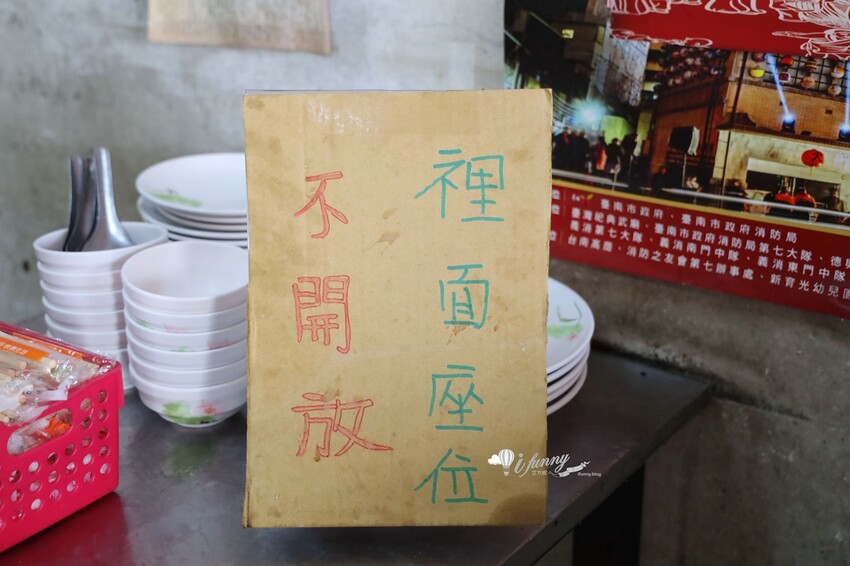 裡面座位
不開放
臺南市政府、臺南市政府消防局
臺灣祀典武廟、臺南市政府消防局第七大隊、德興
義消第七大隊、義消南門中隊、義消東門中隊
台南高農、消防之友會第七辦事處、新育光幼兒園
i funny
ifunny.blog